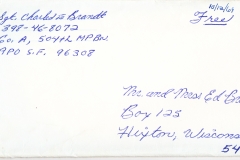 10/12/69
Free
Sgt. Charles E Brandt
398-46-8072
Co. A, 504th MP Bn.
APO S.F. 96308
Mr. and Mrs Ed Br
Box 125
Hixton, Wisconsi
54